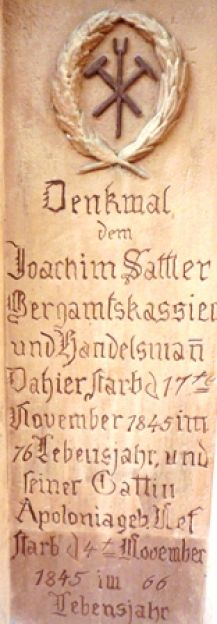 Denkmal
dem
Joachim Sattler
Bergamtskassier
und Handelsmañ
Dahier starb d 17te
November 1845 im
76 Lebensjahr, und
seiner Gattin
Apolonia geb Nef
starb d 4te November
1845 im 66
Lebensjahr